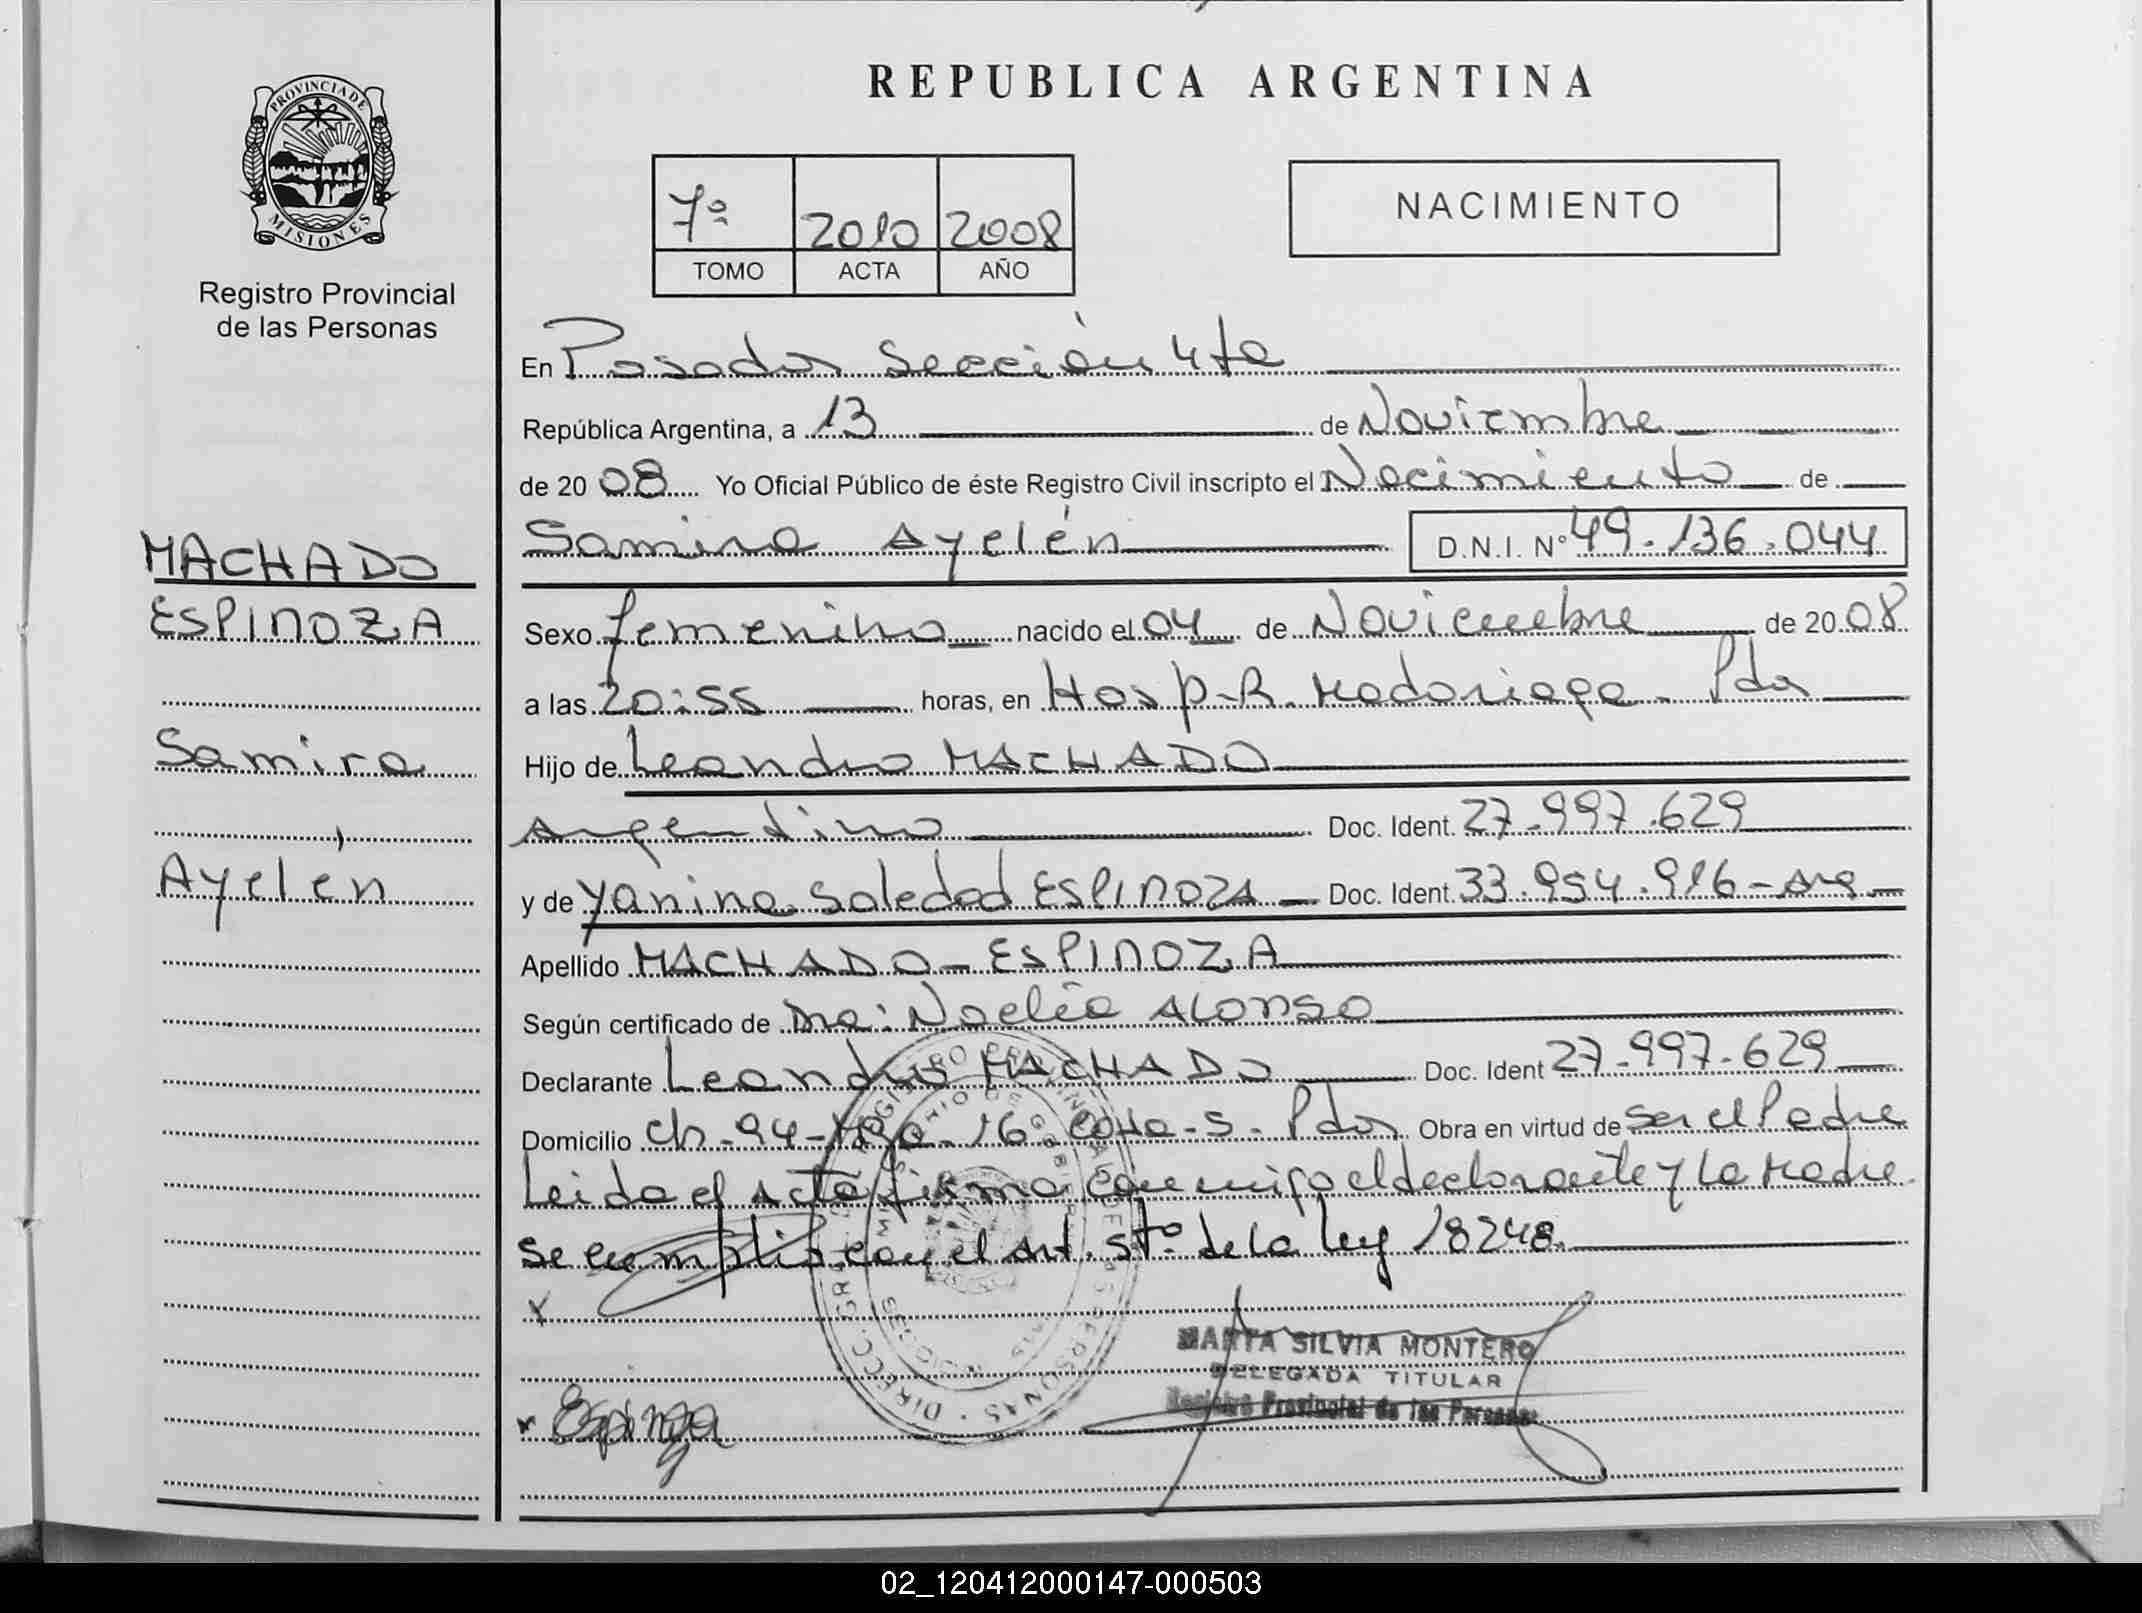 REPUBLICA ARGENTINA
PROVINCIA DE
MISIONES
Registro Provincial
de las Personas
7º 2010 2008
TOMO ACTA AÑO
NACIMIENTO
En Posadas Sección 4ta
República Argentina, a 13 de Noviembre
de 2008 Yo Oficial Público de éste Registro Civil inscripto el Nacimiento de
Samira Ayelén D.N.I. N° 49.136.044
MACHADO
ESPINOZA
Samira
Ayelén
Sexo femenino nacido el 04 de Noviembre de 2008
a las 20:55 horas, en Hosp. R. Madariaga - Pdas
Hijo de Leandro MACHADO
Argentino Doc. Ident. 27.997.629
y de Yanina Soledad ESPINOZA Doc. Ident. 33.954.916 - Arg
Apellido MACHADO - ESPINOZA
Según certificado de Dra: Noelia ALONSO
Declarante Leandro MACHADO Doc. Ident 27.997.629
Domicilio ch - 94 - Mza. 16 Pdas Obra en virtud de ser el Padre
Leida el Acta firma conmigo el declarante y la Madre
se cumplió con el Art. 5to de la ley 18248.
x
MARTA SILVIA MONTERO
DELEGADA TITULAR
Registro Provincial de las Personas
x Espinoza
02_120412000147-000503